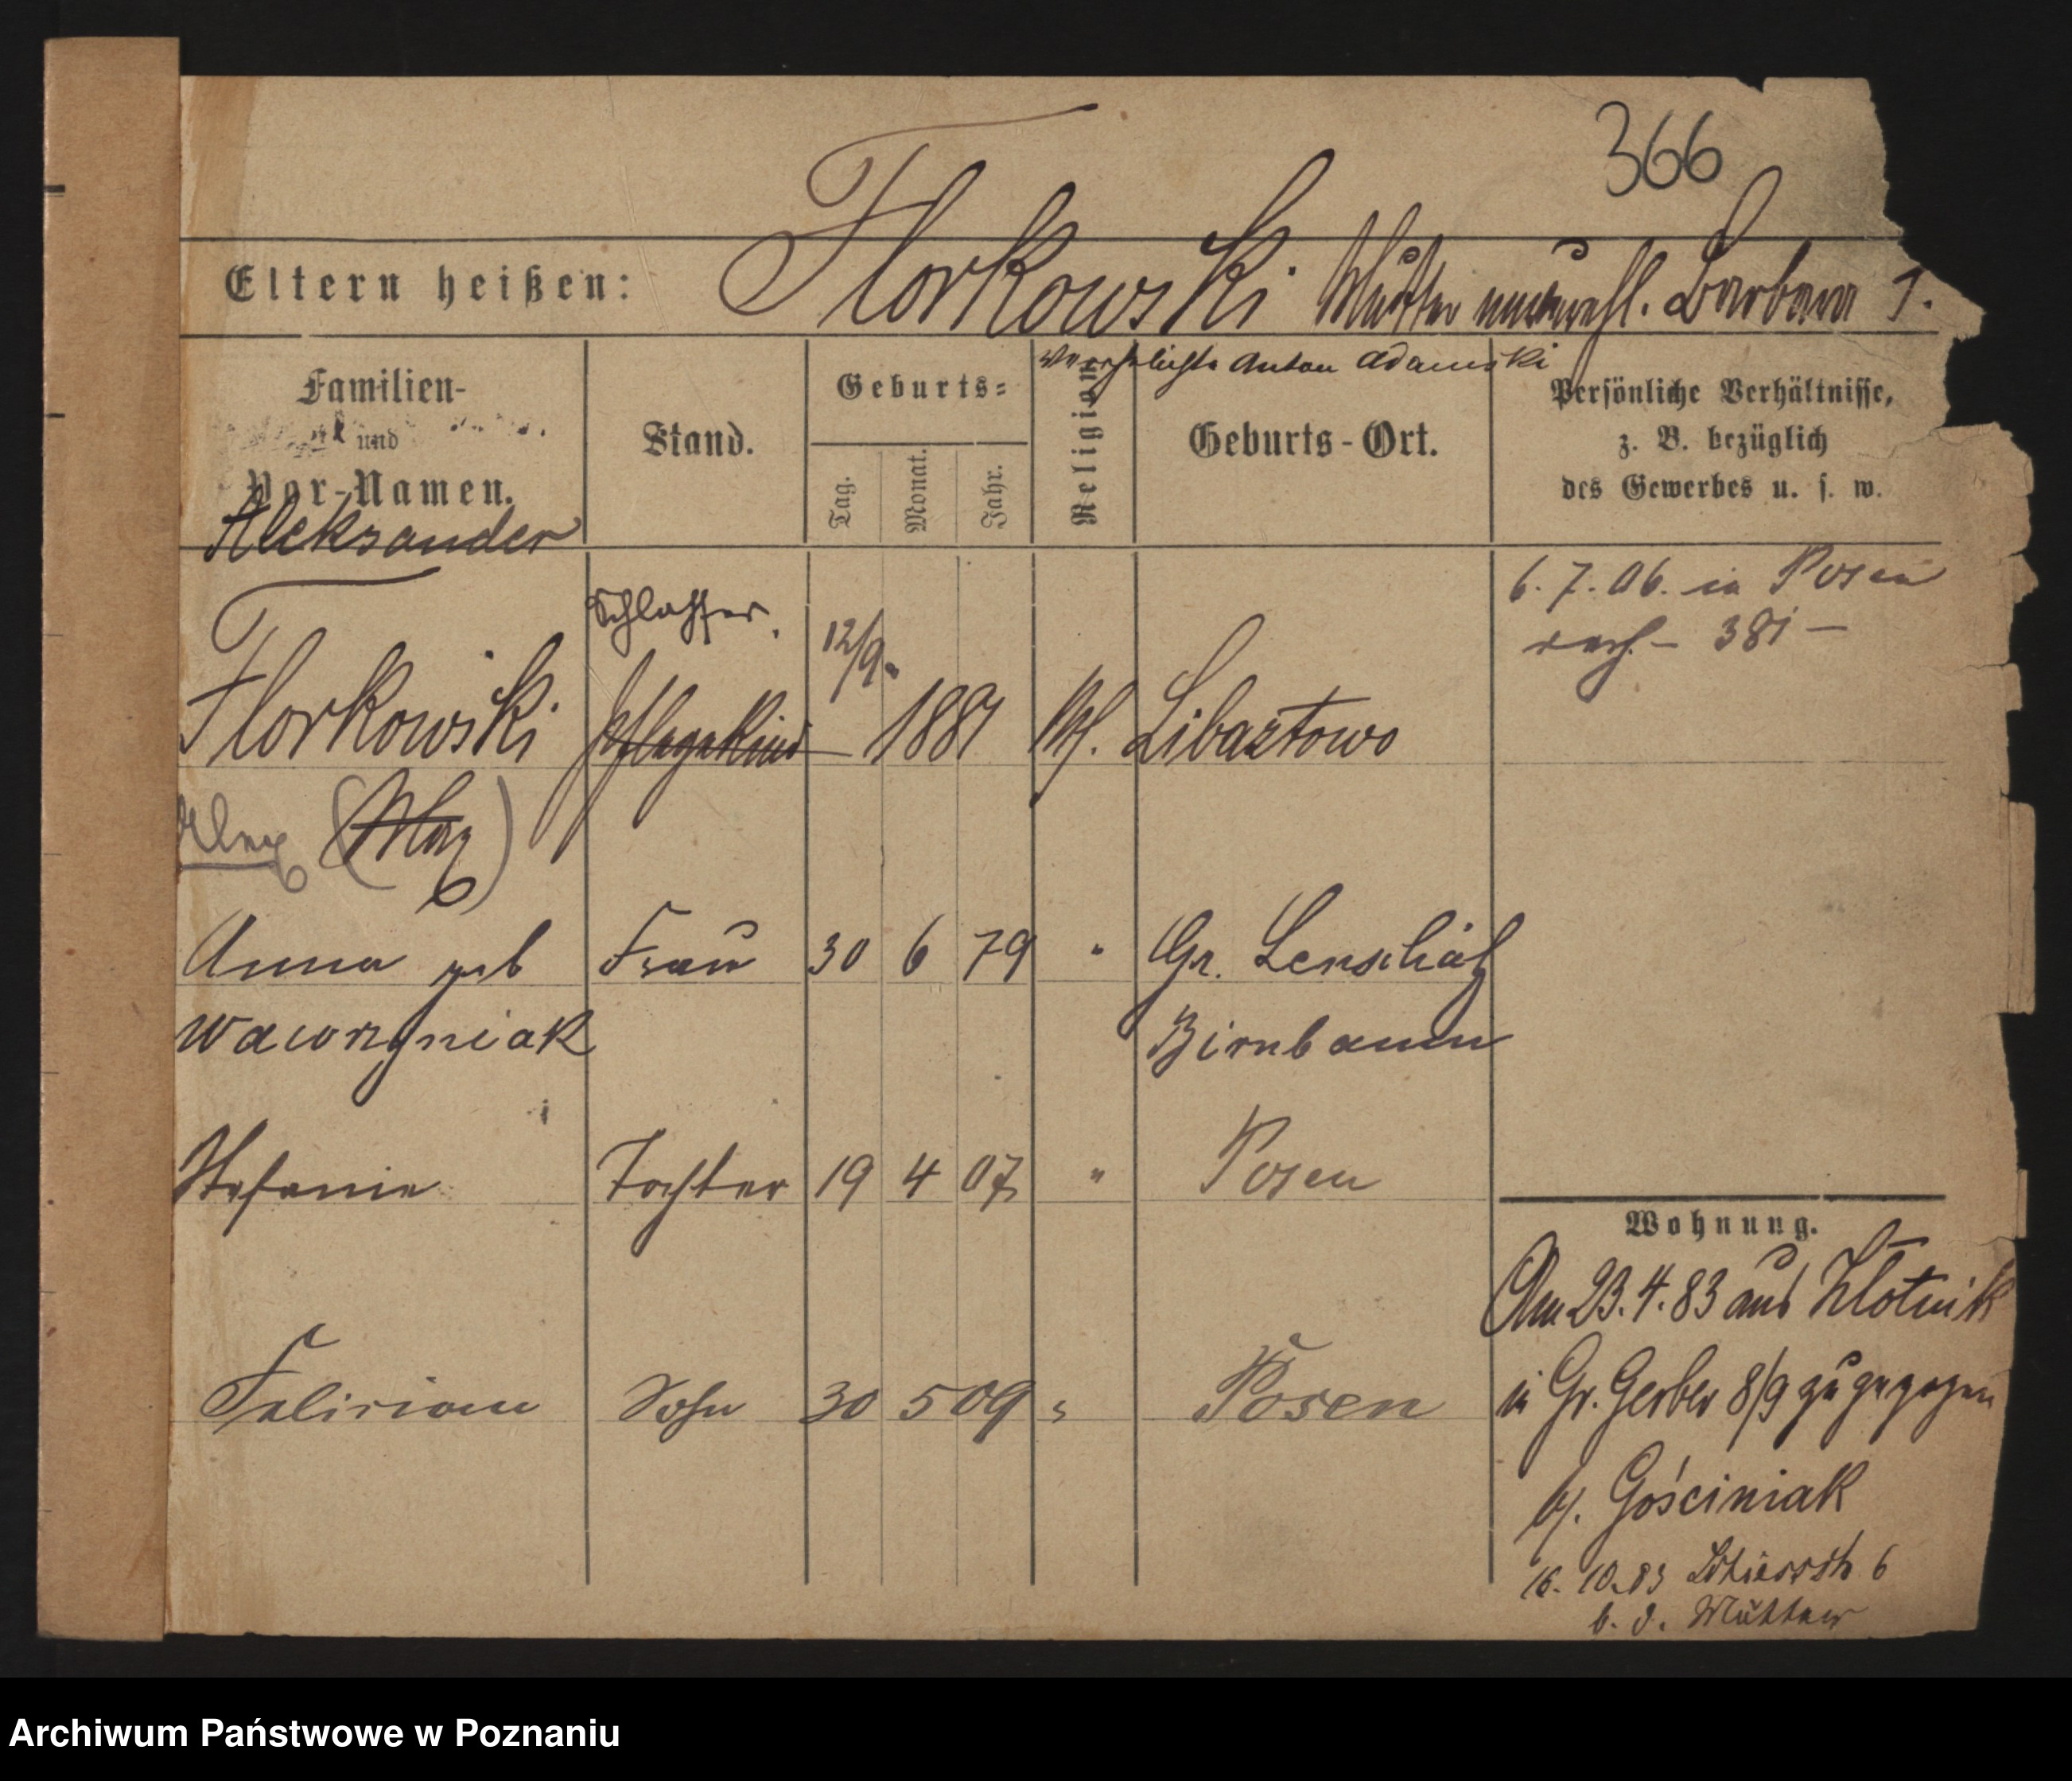 366
Eltern heißen: Florkowski Mutter unverehl. Barbara
verehelichte Anton Adamski
Familien-
und
Vor-Namen.
Stand.
Geburts-
Tag. Monat. Jahr.
Religion
Geburts-Ort.
Persönliche Verhältnisse,
z. B. bezüglich
des Gewerbes u. s. w.
Aleksander
Schlosser.
12/9. 6. 7. 06. in Posen
381 —
Florkowski Pflegekind 1881 Libartowo
Alex (Max)
Anna geb Frau 30 6 79 " Gr. Lenschütz
Wawrzyniak Birnbaum
Stefanie Tochter 19 4 07 " Posen
Wohnung.
Am 23.4.83 aus Zlotnik
Felician Sohn 30 5 09 " Posen
in Gr. Gerber 8/9 zugezogen
b/. Gościniak
16. 10. 83 6
b. d. Mutter
Archiwum Państwowe w Poznaniu